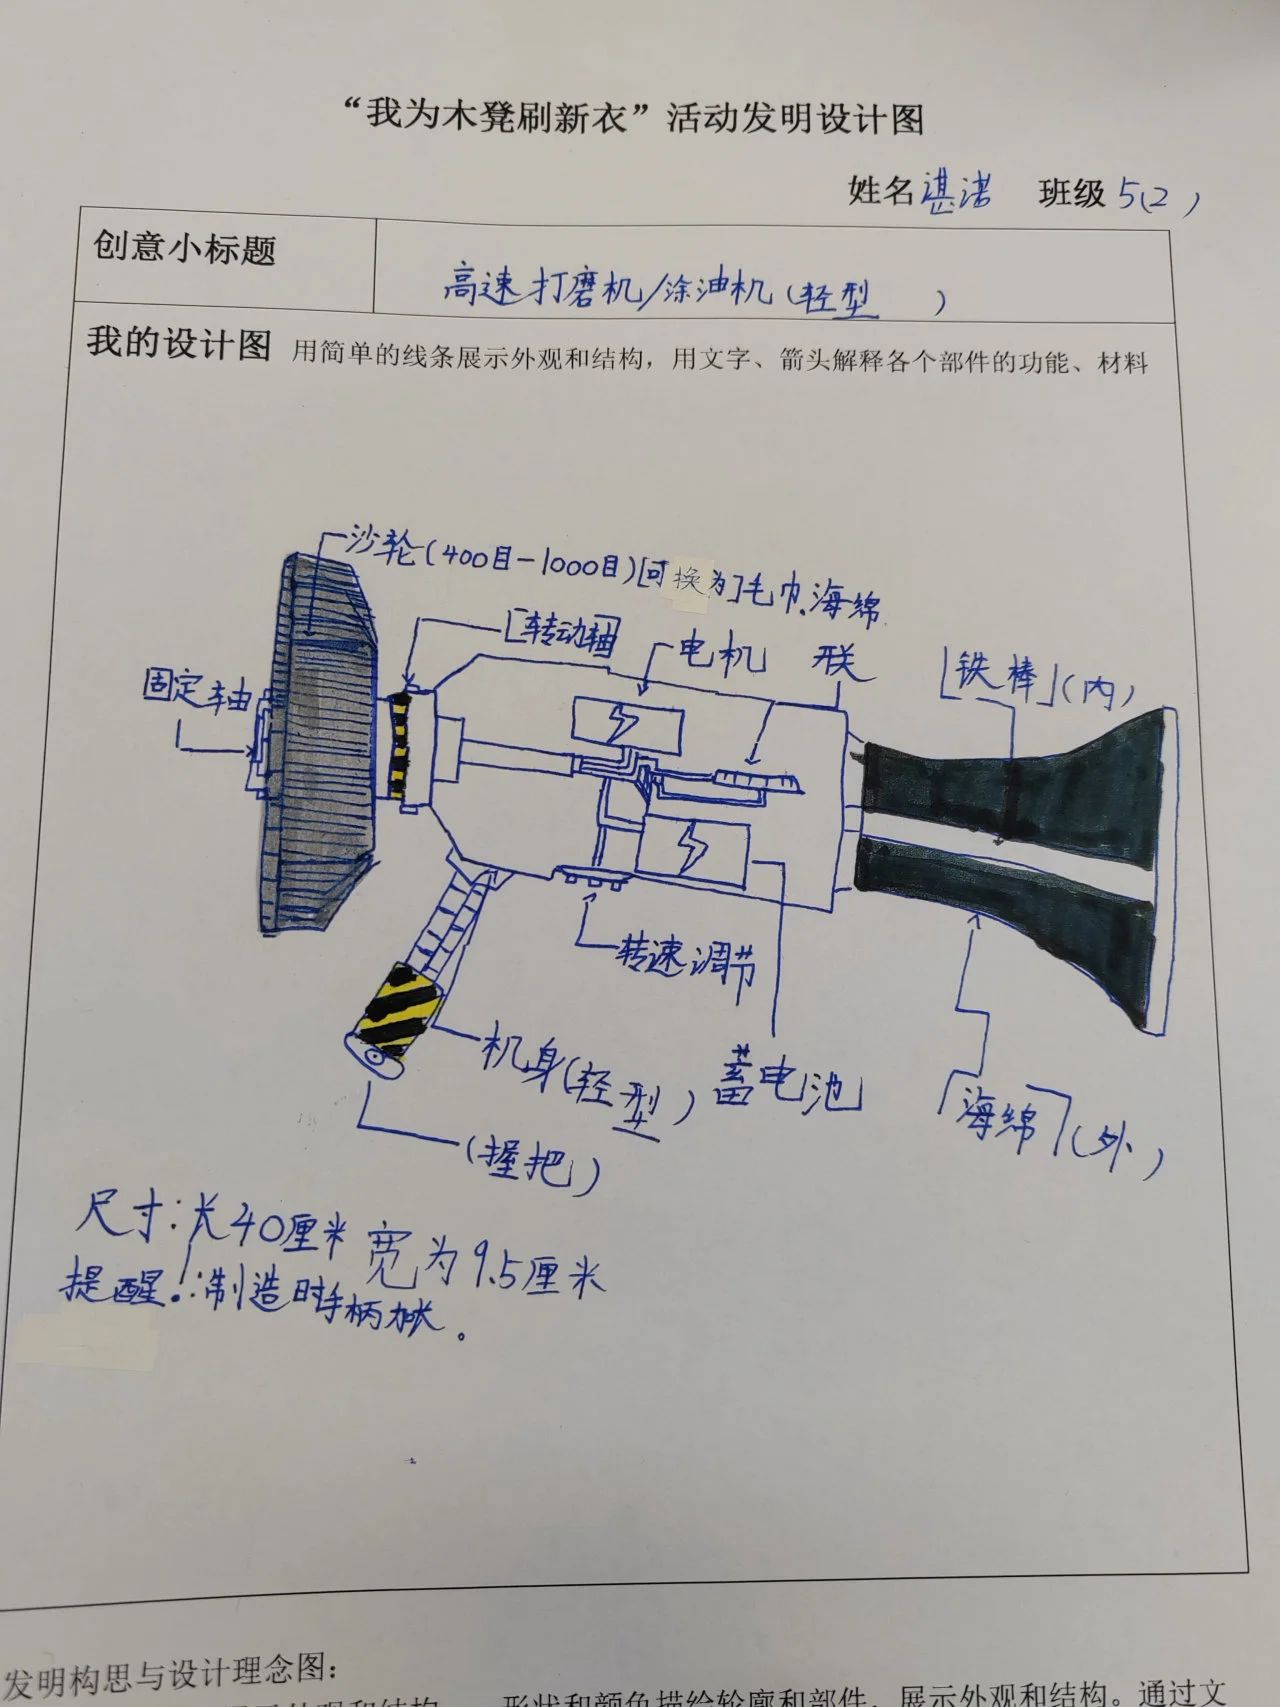 “我为木凳刷新衣”活动发明设计图
姓名 谌诺 班级 5(2)
创意小标题
高速打磨机/涂油机(轻型)
我的设计图 用简单的线条展示外观和结构，用文字、箭头解释各个部件的功能、材料
沙轮(400目-1000目)[可换为]毛巾.海绵
[转动轴]
电机
[铁棒](内)
固定轴
转速调节
机身(轻型)
蓄电池
「海绵」(外)
(握把)
尺寸:长40厘米 宽为9.5厘米
提醒!:制造时手柄加长。
发明构思与设计理念图：
形状和颜色描绘轮廓和部件，展示外观和结构。通过文